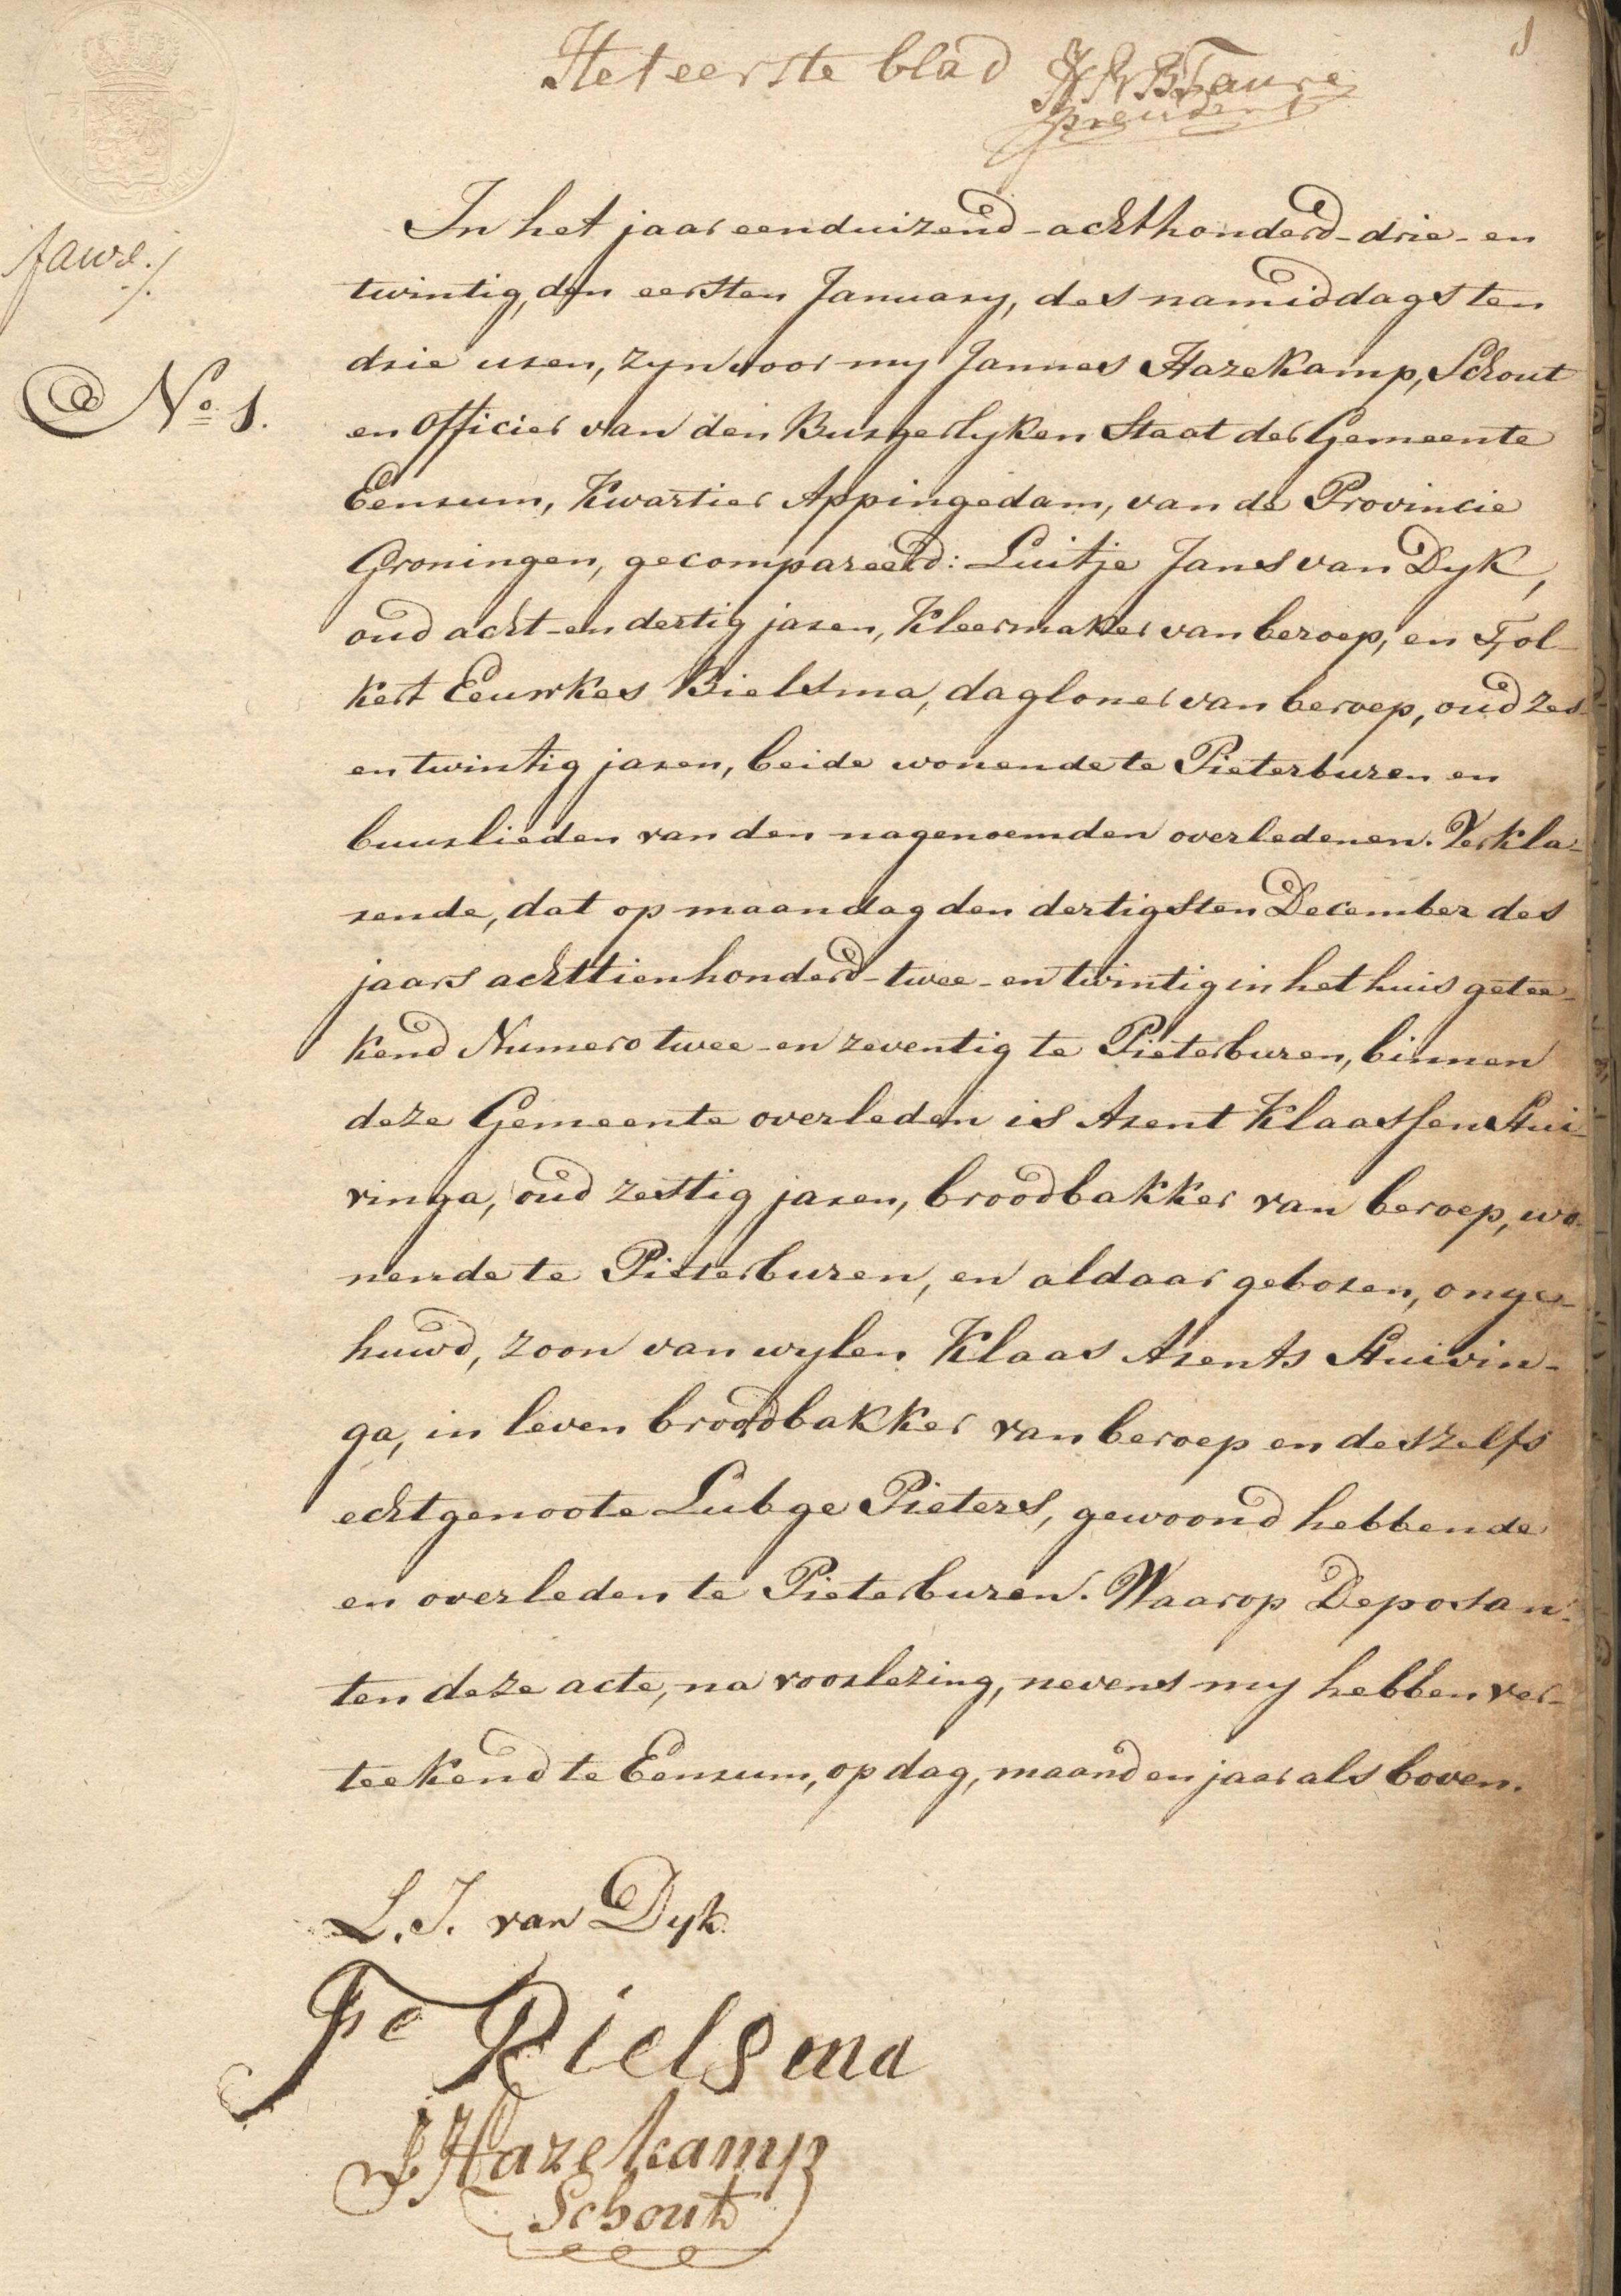 Het eerste blad
Faure
president
1
faure
No 1.
In het jaar eenduizend-achthonderd-drie-en
twintig, den eersten January, des namiddags ten
drie uren, zyn voor my Jannes Hazekamp, Schout
en Officier van den Burgerlyken Staat der Gemeente
Eenrum, Kwartier Appingedam, van de Provincie
Groningen, gecompareerd: Luitje Jans van Dyk,
oud acht-en dertig jaren, Kleermaker van beroep, en Fol-
kert Eeuwkes Bielsma, dagloner van beroep, oud zes-
en twintig jaren, beide wonende te Pieterburen en
buurlieden van den nagenoemden overledenen. Verkla-
rende, dat op maandag den dertigsten December des
jaars achttienhonderd-twee-en twintig in het huis getee-
kend Numero twee-en zeventig te Pieterburen, binnen
deze Gemeente overleden is Arent Klaassen Hui-
ringa, oud zestig jaren, broodbakker van beroep, wo-
nende te Pieterburen, en aldaar geboren, onge-
huwd, zoon van wylen Klaas Arents Huirin-
ga, in leven broodbakker van beroep en deszelfs
echtgenoote Lubge Pieters, gewoond hebbende
en overleden te Pieterburen. Waarop Deposan-
ten deze acte, na voorlezing, nevens my hebben ver-
teekend te Eenrum, op dag, maand en jaar als boven.
L. J. van Dyk
F e Bielsma
J Hazekamp
Schout